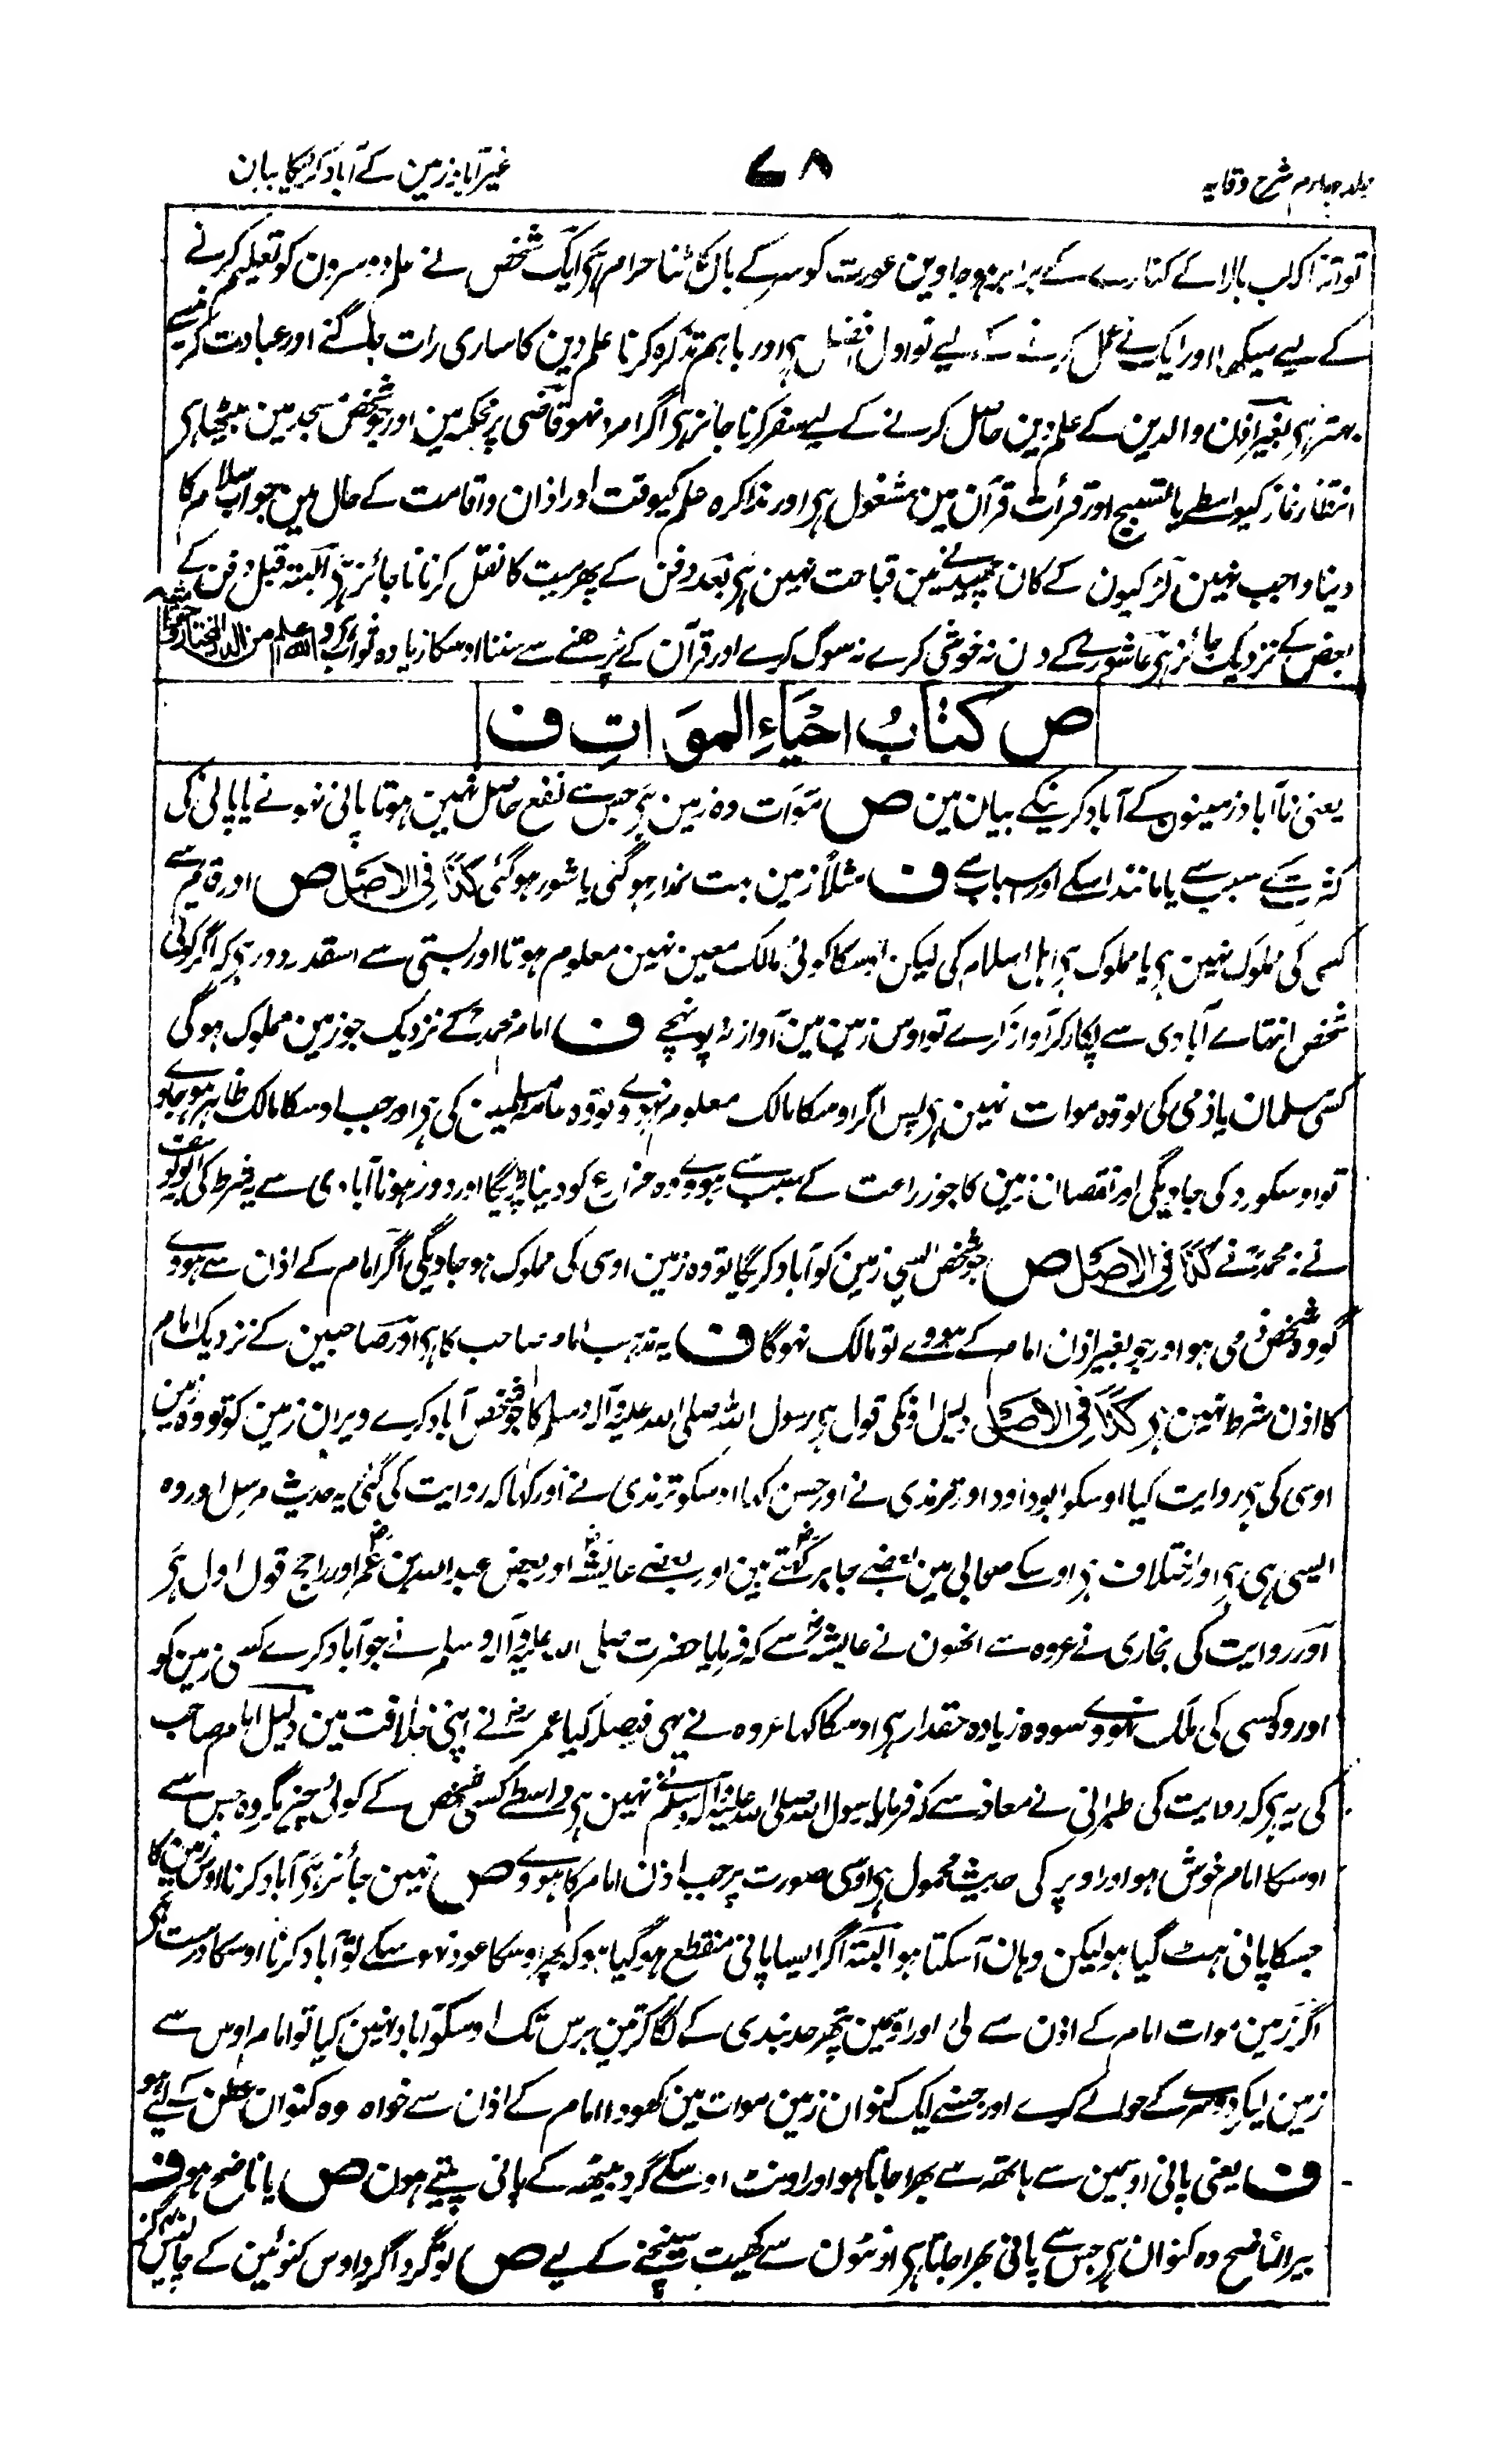 جلد چہارم شرح وقایہ
۷۸
غیر آباد زمین کے آباد کرنیکا بیان
تو اتنا کہ لب بالا کے کنارے کے برابر ہو جاوین عورت کو سر کے بال کاٹنا حرام ہی ایک شخص نے علم دوسرون کو تعلیم کرنے
کے لیے سیکھا اور ایک نے عمل کرنے کے لیے تو اول افضل ہی اور باہم تذکرہ کرنا علم دین کا ساری رات جاگنے اور عبادت کرنیسے
بہتر ہی بغیر اذن والدین کے علم دین حاصل کرنے کے لیے سفر کرنا جائز ہی اگر امرد نہو قاضی پر محکمہ مین اور جو شخص مسجد مین بیٹھا ہی
انتظار نماز کیواسطے یا تسبیح اور قرأت قرآن مین مشغول ہی اور تذاکرہ علم کیوقت اور اذان و اقامت کے حال مین جواب سلام کا
دینا واجب نہین لڑکیون کے کان چھیدنے مین قباحت نہین ہی بعد دفن کے پھر میت کا نقل کرنا ناجائز ہی البتہ قبل دفن کے
بعض کے نزدیک جائز ہی عاشورے کے دن نہ خوشی کرے نہ سوگ کرے اور قرآن کے پڑھنے سے سننا اوسکا زیادہ ثواب ہی واللہ اعلم من الدر المختار
ص کتابُ احیَاءِ المَوَاتِ ف
یعنی ناآباد زمینون کے آباد کرنیکے بیان مین ص مَوَات وہ زمین ہی جس سے نفع حاصل نہین ہوتا پانی نہونے یا پانی کی
کثرت کے سبب سے یا مانند اسکے اور اسباب سے ف مثلاً زمین بہت نمدار ہو گئی یا شور ہو گئی کَذَا فِی الاصل ص اور قدیم سے
کسی کی مملوک نہین ہی یا مملوک ہی اہل اسلام کی لیکن اوسکا کوئی مالک معین نہین معلوم ہوتا اور بستی سے اسقدر دور ہی کہ اگر کوئی
شخص انتہاے آبادی سے پکار کر آواز کرے تو اوس زمین مین آواز نہ پہونچے ف امام محمد کے نزدیک جو زمین مملوک ہو گی
کسی مسلمان یا ذمی کی تو وہ موات نہین ہی پس اگر اوسکا مالک معلوم نہووے تو وہ عامہ مسلمین کی ہی اور جب اوسکا مالک ظاہر ہو جاوے
تو اوسکو رد کی جاویگی اور نقصان زمین کا جو زراعت کے سبب سے ہووے وہ مزارع کو دینا پڑیگا اور دور ہونا آبادی سے یہ شرط کی ابو یوسف
نے نہ محمد نے کَذَا فِی الاصل ص جو شخص ایسی زمین کو آباد کریگا تو وہ زمین اوسی کی مملوک ہو جاویگی اگر امام کے اذن سے ہووے
گو وہ شخص ذمی ہو اور جو بغیر اذن امام کے ہووے تو مالک نہوگا ف یہ مذہب امام صاحب کا ہی اور صاحبین کے نزدیک امام
کا اذن شرط نہین ہی کَذَا فِی الاصل دلیل اونکی قول ہی رسول اللہ صلی اللہ علیہ وآلہ وسلم کا جو شخص آباد کرے ویران زمین کو تو وہ زمین
اوسی کی ہی روایت کیا اوسکو ابوداود اور ترمذی نے اور حسن کہا اوسکو ترمذی نے اور کہا کہ روایت کی گئی یہ حدیث مرسل اور وہ
ایسی ہی ہی اور اختلاف ہی اوسکے صحابی مین بعضے جابر کہتے ہین اور بعضے عایشہ اور بعض عبداللہ بن عمر اور راجح قول اول ہی
اور روایت کی بخاری نے عروہ سے انھون نے عایشہ سے کہ فرمایا حضرت صلی اللہ علیہ وآلہ وسلم نے جو آباد کرے کسی زمین کو
اور وہ کسی کی ملک نہووے سو وہ زیادہ حقدار ہی اوسکا کہا عروہ نے یہی فیصلہ کیا عمر نے اپنی خلافت مین دلیل امام صاحب
کی یہ ہی کہ روایت کی طبرانی نے معاذ سے کہ فرمایا رسول اللہ صلی اللہ علیہ وآلہ وسلم نے نہین ہی واسطے کسی شخص کے کوئی چیز مگر وہ جس سے
اوسکا امام خوش ہو اور اوپر کی حدیث محمول ہی اوسی صورت پر جب اذن امام کا ہووے ص نہین جائز ہی آباد کرنا اوس زمین کا
جسکا پانی ہٹ گیا ہو لیکن وہان آسکتا ہو البتہ اگر ایسا پانی منقطع ہو گیا ہو کہ پھر اوسکا عود نہو سکے تو آباد کرنا اوسکا درست ہی
اگر زمین موات امام کے اذن سے لی اور اوسمین پتھر حد بندی کے لگا کر تین برس تک اوسکو آباد نہین کیا تو امام اوس سے
زمین لیکر دوسرے کے حوالے کرے اور جسنے ایک کنوان زمین موات مین کھودا امام کے اذن سے خواہ وہ کنوان عطن کے لیے ہو
ف یعنی پانی اوسمین سے ہاتھ سے بھرا جاتا ہو اور اونٹ اوسکے گرد بیٹھ کے پانی پیتے ہون ص یا ناضح ہو ف
بیر الناضح وہ کنوان ہی جس سے پانی بھرا جاتا ہی اونٹون سے کھیت سینچنے کے لیے ص تو گرداگرد اوس کنوئین کے چالیس گز